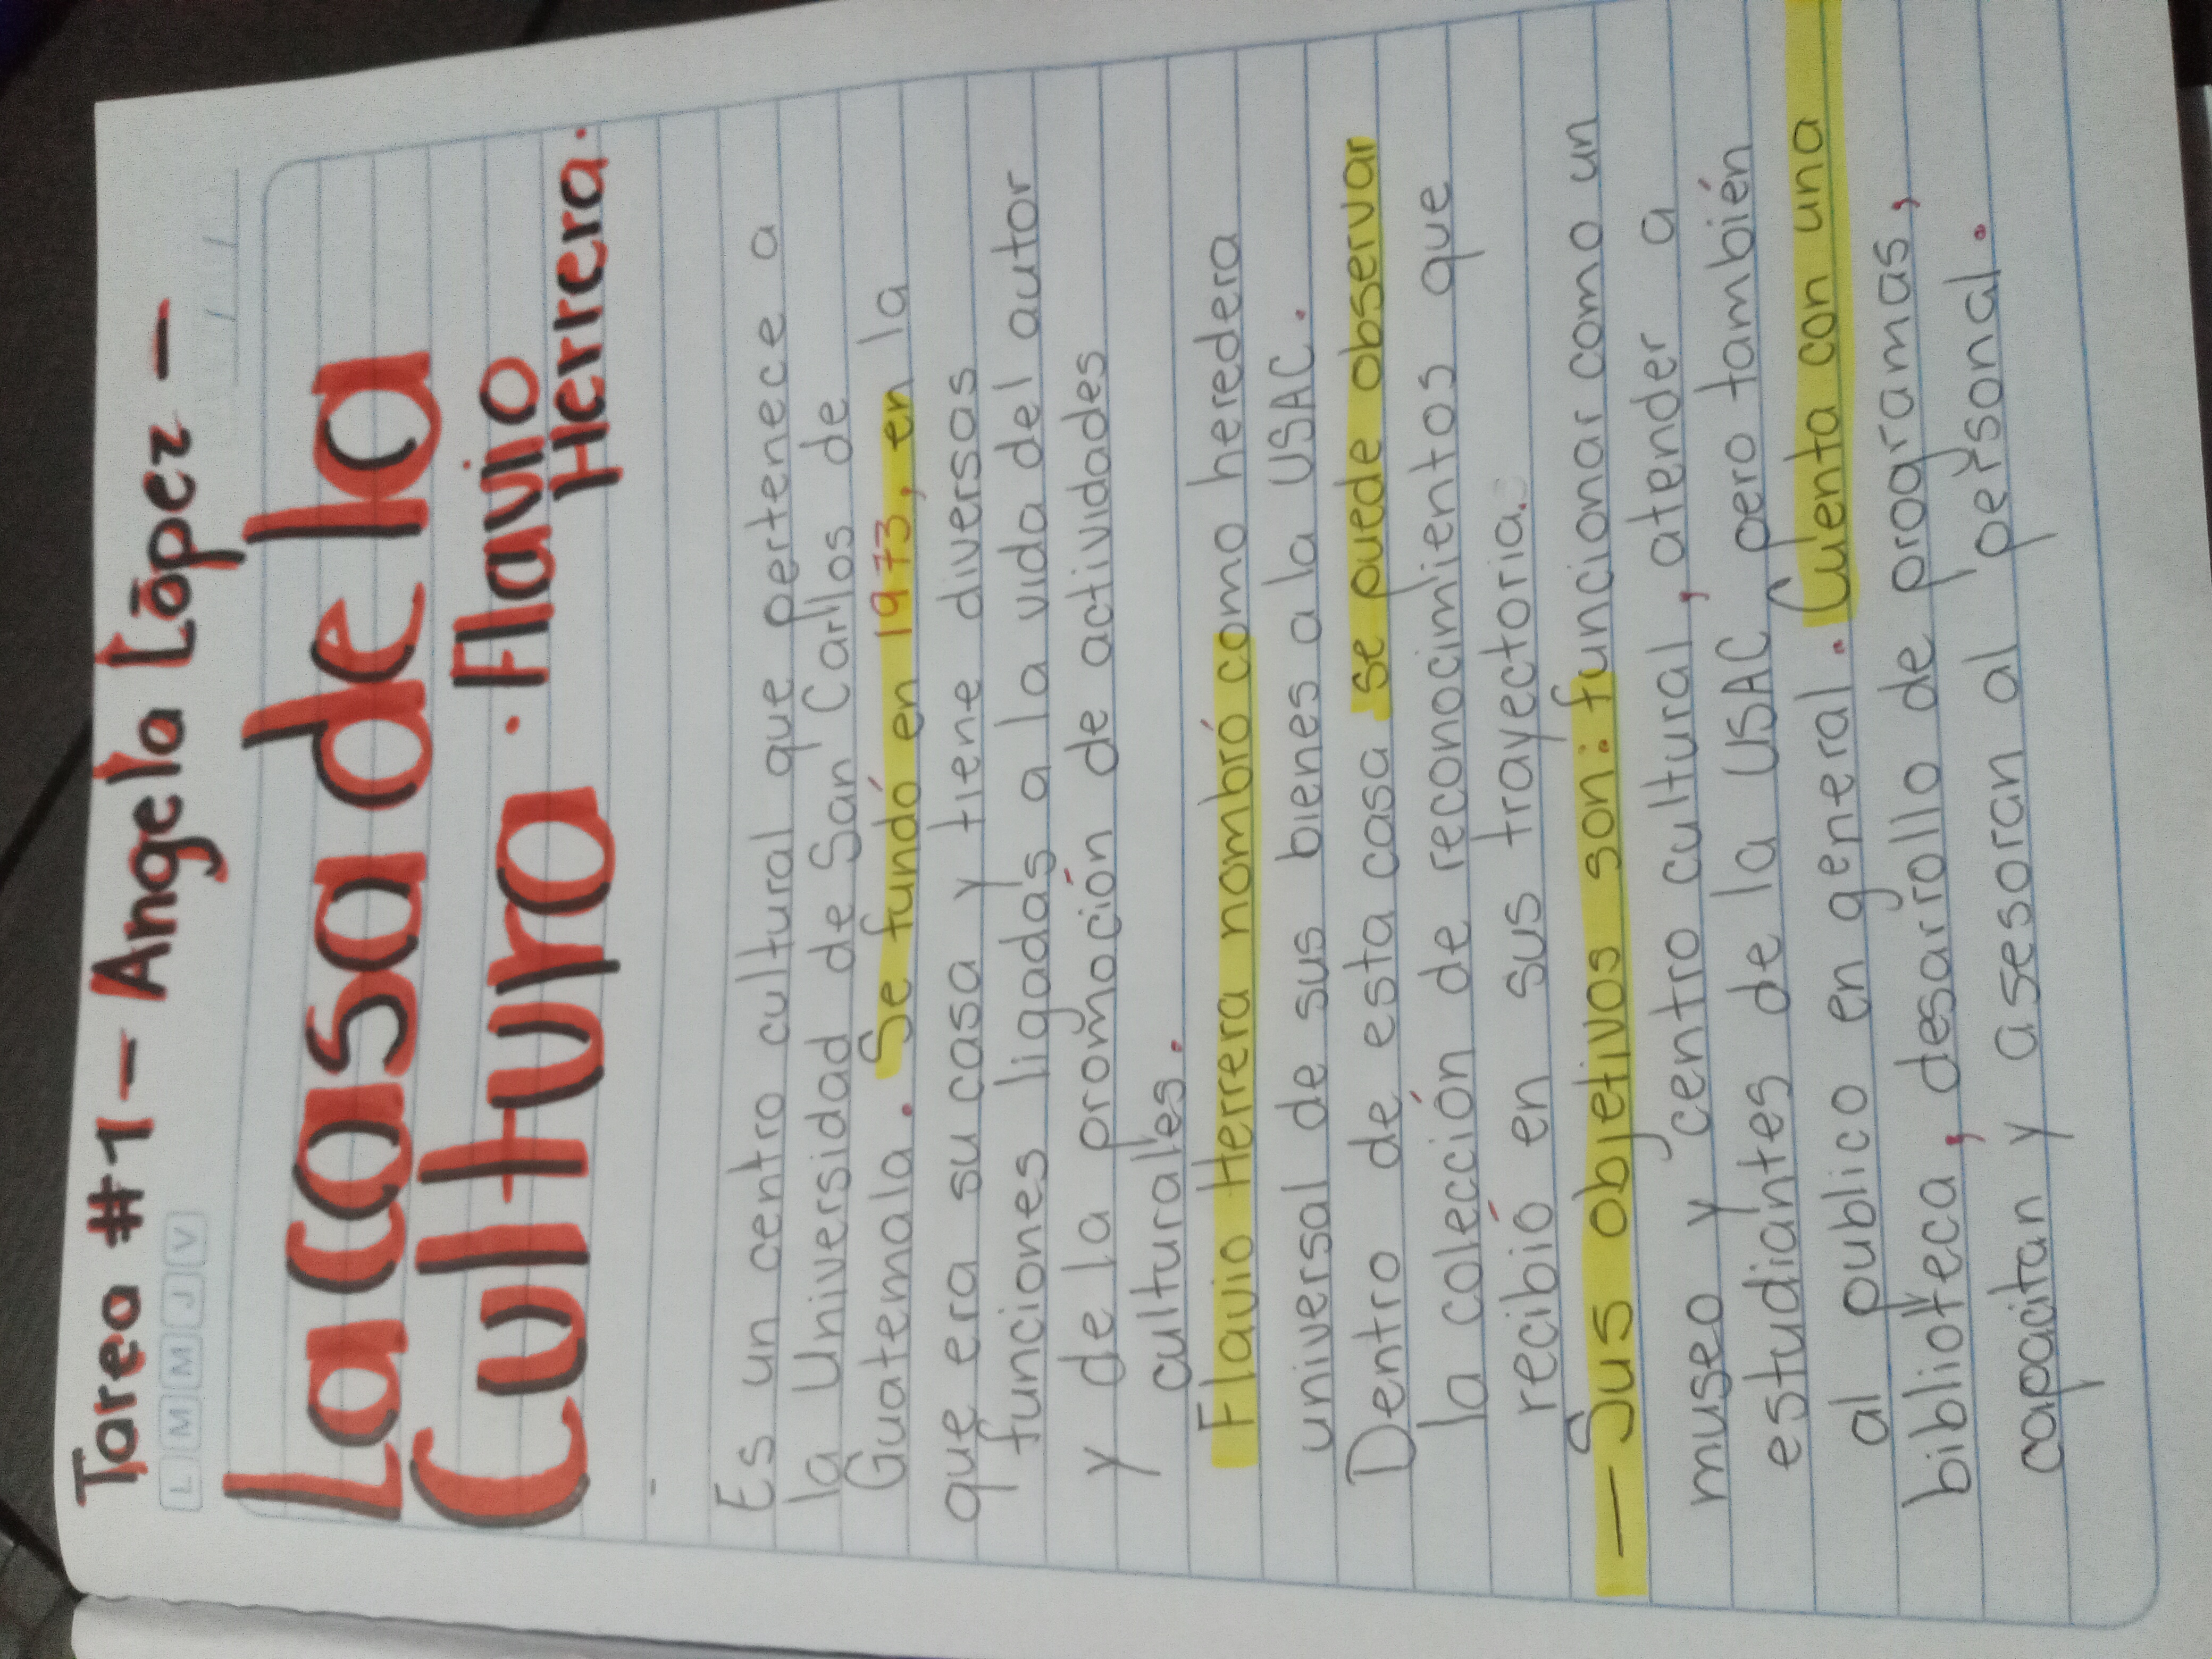 Tarea #1 - Angela López -
L M M J V
La Casa de la
Cultura · Flavio
Herrera.
Es un centro cultural que pertenece a
la Universidad de San Carlos de
Guatemala. Se fundó en 1973, en la
que era su casa y tiene diversas
funciones ligadas a la vida del autor
y de la promoción de actividades
culturales.
Flavio Herrera nombró como heredera
universal de sus bienes a la USAC.
Dentro de esta casa se puede observar
la colección de reconocimientos que
recibió en sus trayectoria.
— Sus objetivos son: funcionar como un
museo y centro cultural, atender a
estudiantes de la USAC pero también
al publico en general. Cuenta con una
biblioteca, desarrollo de programas,
capacitan y asesoran al personal.